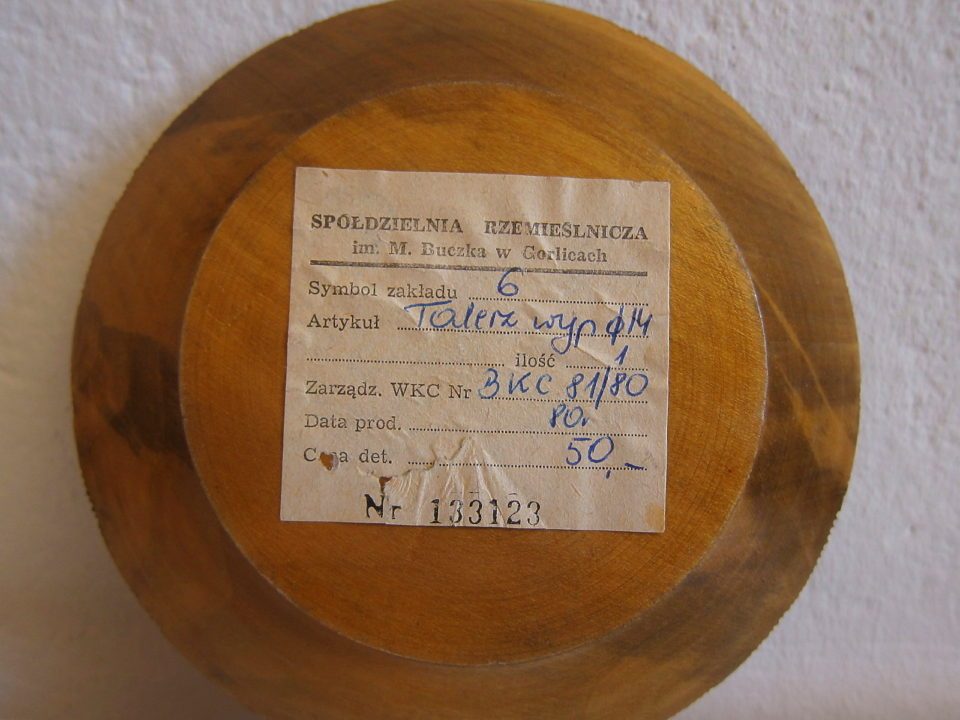 SPÓŁDZIELNIA RZEMIEŚLNICZA
im. M. Buczka w Gorlicach
Symbol zakładu 6
Artykuł Talerz wyp ϕ 14
ilość 1
Zarządz. WKC Nr 3KC 81/80
Data prod. 80r
Cena det. 50,-
Nr 133123